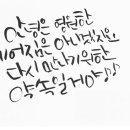 안녕은 영원한
헤어짐은 아니겠지요
다시 만나기 위한
약속일거야♪♪